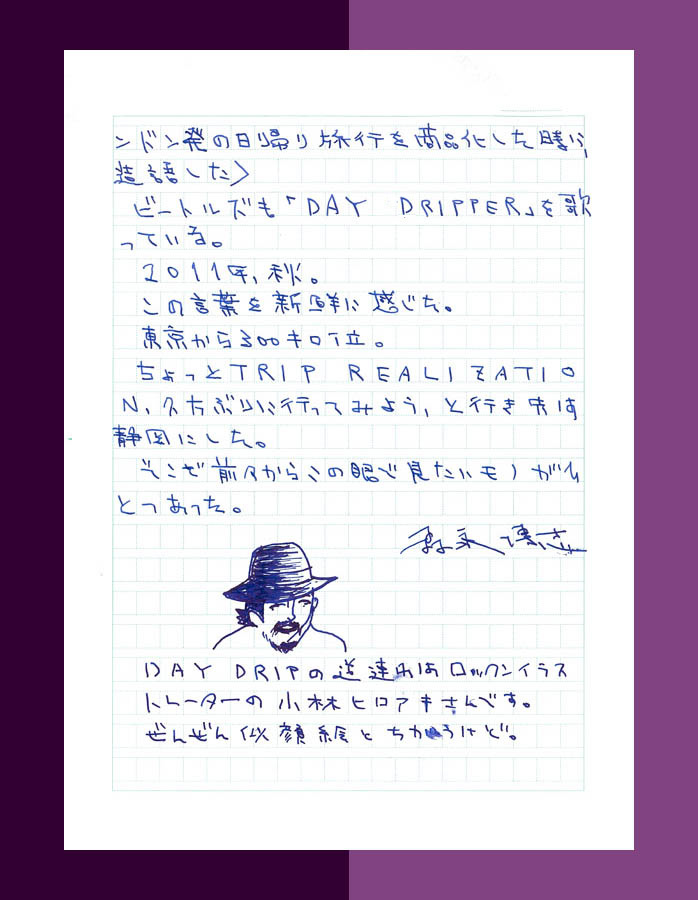 ンドン発の日帰り旅行を商品化した時に、
造語した〉
ビートルズも「DAY DRIPPER」を歌
っている。
2011年、秋。
この言葉を新鮮に感じた。
東京から300キロ位。
ちょっとTRIP REALIZATIO
N、久方ぶりに行ってみよう、と行き先は
静岡にした。
そこで前々からこの眼で見たいモノがひ
とつあった。
DAY DRIPの道連れはロックンイラス
トレーターの小林ヒロアキさんです。
ぜんぜん似顔絵とちがうけど。